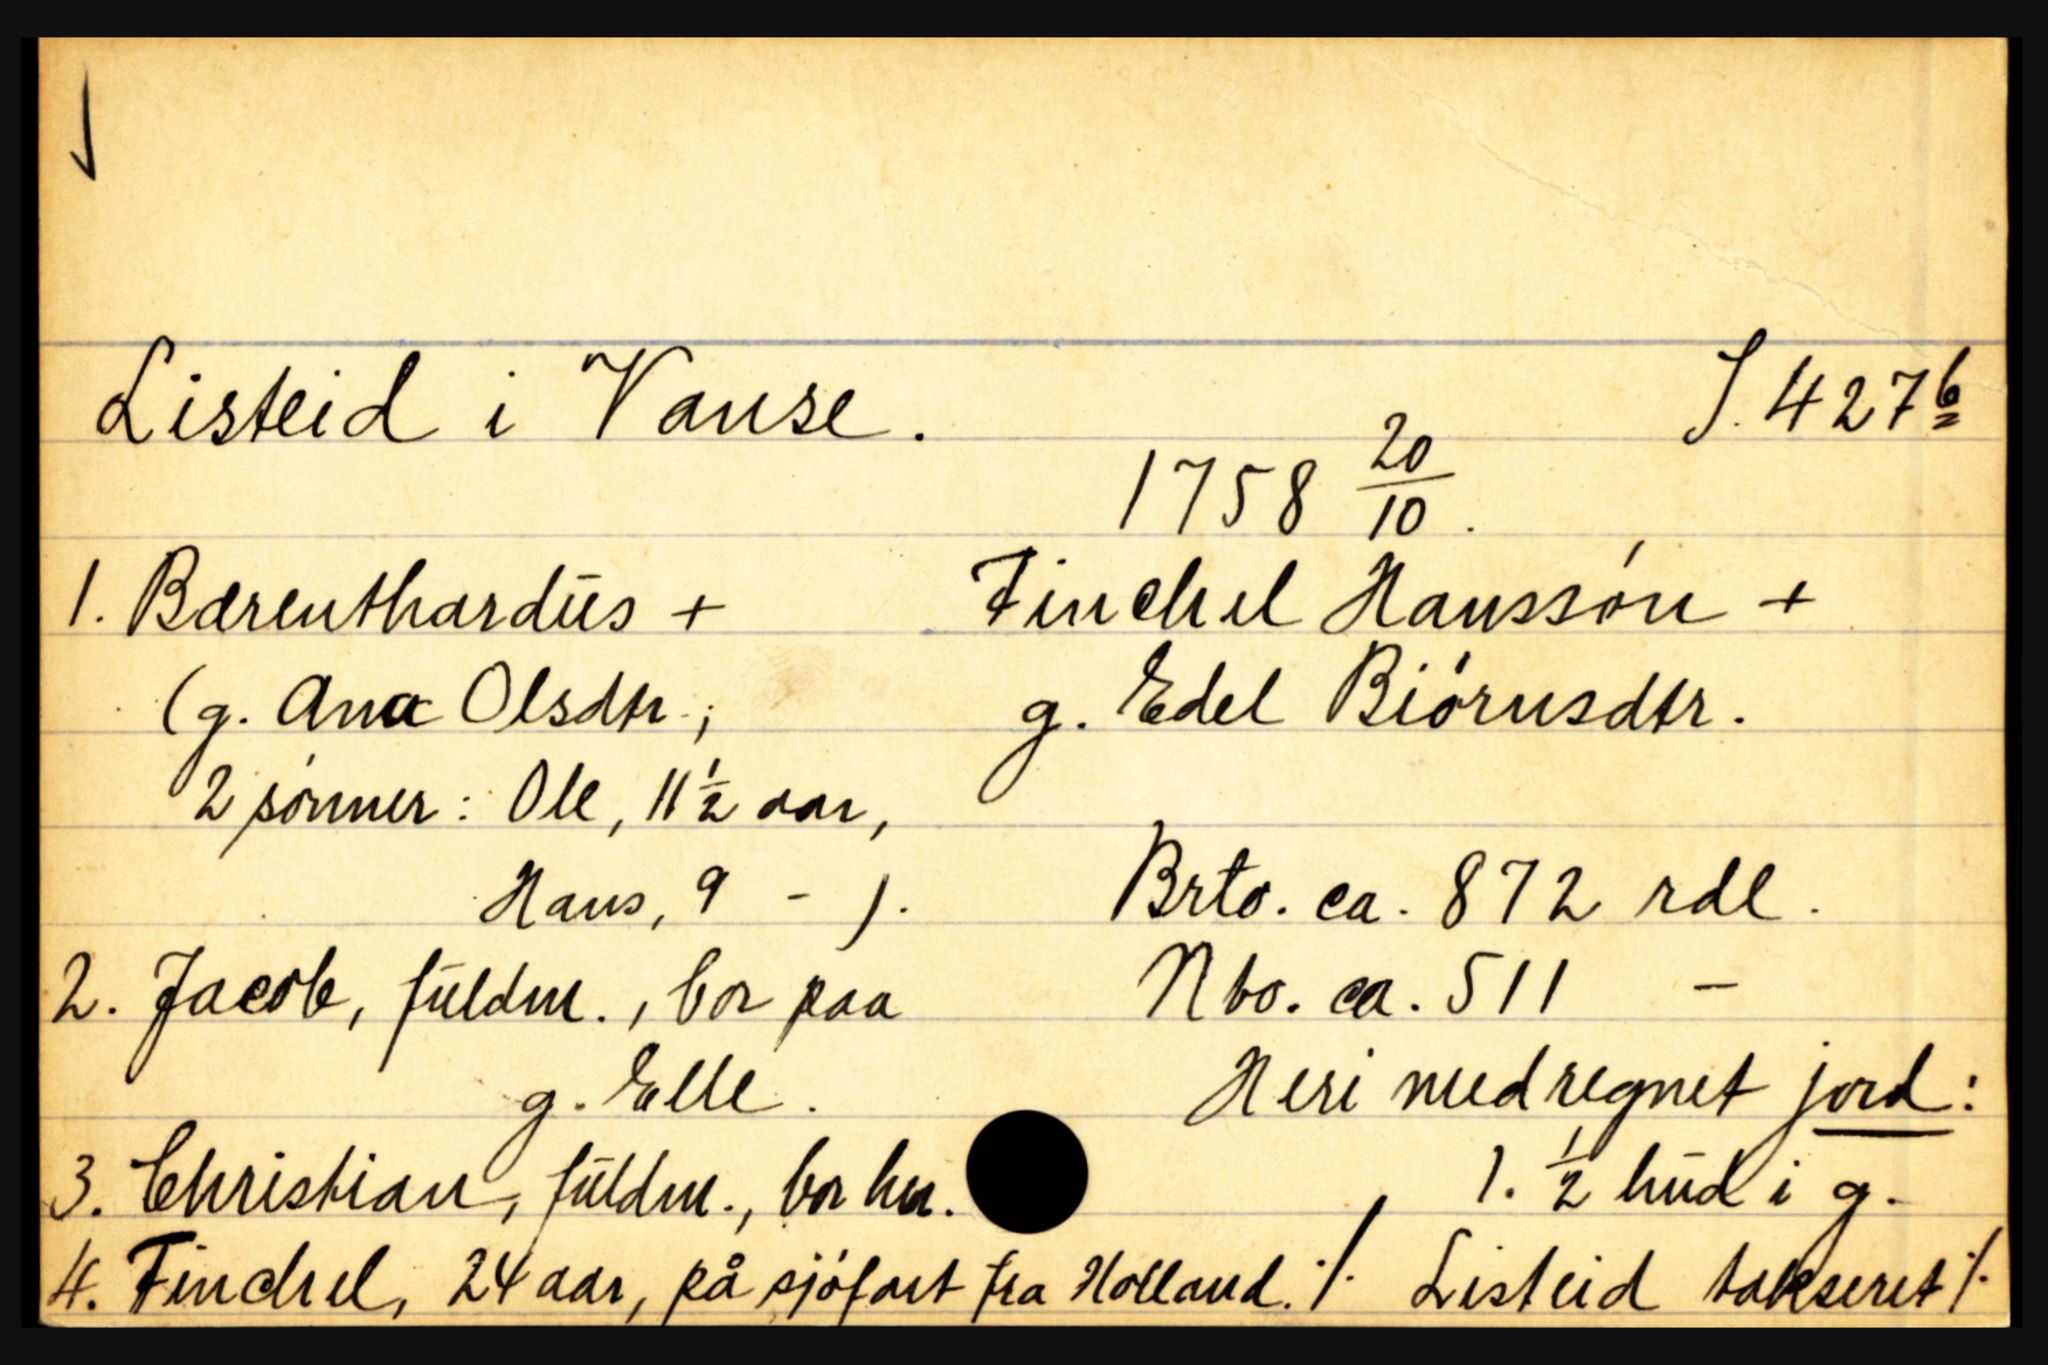 Listeid i Vanse. S. 427b
1758 20/10.
1. Bærenthardus + Finchel Hanssøn +
(g. Ana Olsdtr.; g. Edel Biørnsdtr.
2 sønner: Ole, 11 1/2 aar,
Hans, 9 - ). Brto. ca. 872 rdl.
2. Jacob, fuldm., bor paa Nto. ca. 511 -
g. Elle. Heri medregnet jord:
3. Christian, fuldm., bor her. 1. 1/2 hud i g.
4. Finchel, 24 aar, på sjøfart fra Holland. ./. Listeid takseret ./.